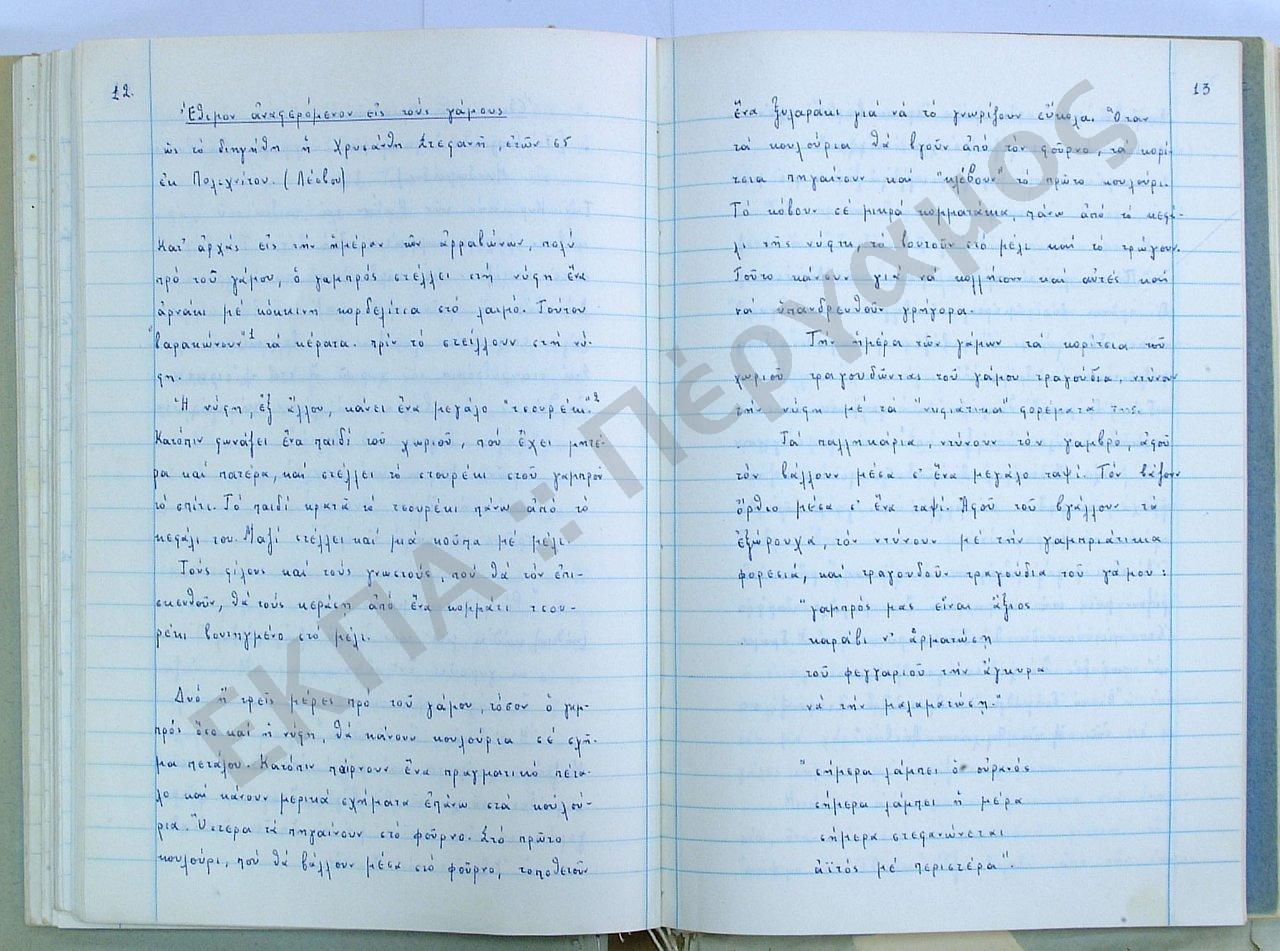 12.
Ἔθιμον ἀναφερόμενον εἰς τούς γάμους
ὡς τό διηγήθη ἡ Χρυσάνθη Στεφανῆ, ἐτῶν 65
ἐκ Πολιχνίτου. (Λέσβου)
Κατ' ἀρχάς εἰς τήν ἡμέραν τῶν ἀρραβώνων, πολύ
πρό τοῦ γάμου, ὁ γαμπρός στέλλει στή νύφη ἕνα
ἀρνάκι μέ κόκκινη κορδελίτσα στό λαιμό. Τούτου
"βαρακώνουν"1 τά κέρατα. πρίν τό στείλλουν στή νύ-
φη.
Ἡ νύφη, ἐξ ἄλλου, κάνει ἕνα μεγάλο "τσουρέκι"2
Κατόπιν φωνάζει ἕνα παιδί τοῦ χωριοῦ, πού ἔχει μητέ-
ρα καί πατέρα, καί στέλλει τό στουρέκι στοῦ γαμπροῦ
τό σπίτι. Τό παιδί κρατᾶ τό τσουρέκι πάνω ἀπό τό
κεφάλι του. Μαζί στέλλει καί μιά κούπα μέ μέλι.
Τούς φίλους καί τούς γνωστούς, πού θά τόν ἐπι-
σκευθοῦν, θά τούς κεράση ἀπό ἕνα κομμάτι τσου-
ρέκι βουτηγμένο στό μέλι.
Δυό ἤ τρεῖς μέρες πρό τοῦ γάμου, τόσον ὁ γαμ-
πρός ὅσο καί ἡ νύφη, θά κάνουν κουλούρια σέ σχῆ-
μα πετάλου. Κατόπιν παίρνουν ἕνα πραγματικό πέτα-
λο καί κάνουν μερικά σχήματα ἐπάνω στά κουλού-
ρια. Ὕστερα τά πηγαίνουν στό φοῦρνο. Στό πρῶτο
κουλούρι, πού θά βάλλουν μέσα στό φοῦρνο, τοποθετοῦν
13
ἕνα ξυλαράκι γιά νά τό γνωρίζουν εὔκολα. Ὅταν
τά κουλούρια θά βγοῦν ἀπό τόν φοῦρνο, τά κορί-
τσια πηγαίνουν καί "κλέβουν" τό πρῶτο κουλούρι.
Τό κόβουν σέ μικρά κομματάκια, πάνω ἀπό τό κεφά-
λι τῆς νύφης, τό βουτοῦν στό μέλι καί τό τρώγουν.
Τοῦτο κάνουν γιά νά κολλήσουν καί αὐτές καί
νά ὑπανδρευθοῦν γρήγορα.
Τήν ἡμέρα τῶν γάμων τά κορίτσια τοῦ
χωριοῦ τραγουδῶντας τοῦ γάμου τραγούδια, ντύνουν
τήν νύφη μέ τά "νυφιάτικα" φορέματά της.
Τά παλληκάρια, ντύνουν τόν γαμβρό, ἀφοῦ
τόν βάλλουν μέσα σ' ἕνα μεγάλο ταψί. Τόν βάζουν
ὄρθιο μέσα σ' ἕνα ταψί. Ἀφοῦ τοῦ βγάλλουν τά
ἐξώρουχα, τόν ντύνουν μέ τήν γαμπριάτικια
φορεσιά, καί τραγουδοῦν τραγούδια τοῦ γάμου:
"γαμπρός μας εἶναι ἄξιος
καράβι ν' ἀρματώση
τοῦ φεγγαριοῦ τήν ἄγκυρα
νά τήν μαλαματώση."
"σήμερα λάμπει ὁ οὐρανός
σήμερα λάμπει ἡ μέρα
σήμερα στεφανώνεται
ἀϊτός μέ περιστέρα".
ΕΚΠΑ :: Πέργαμος